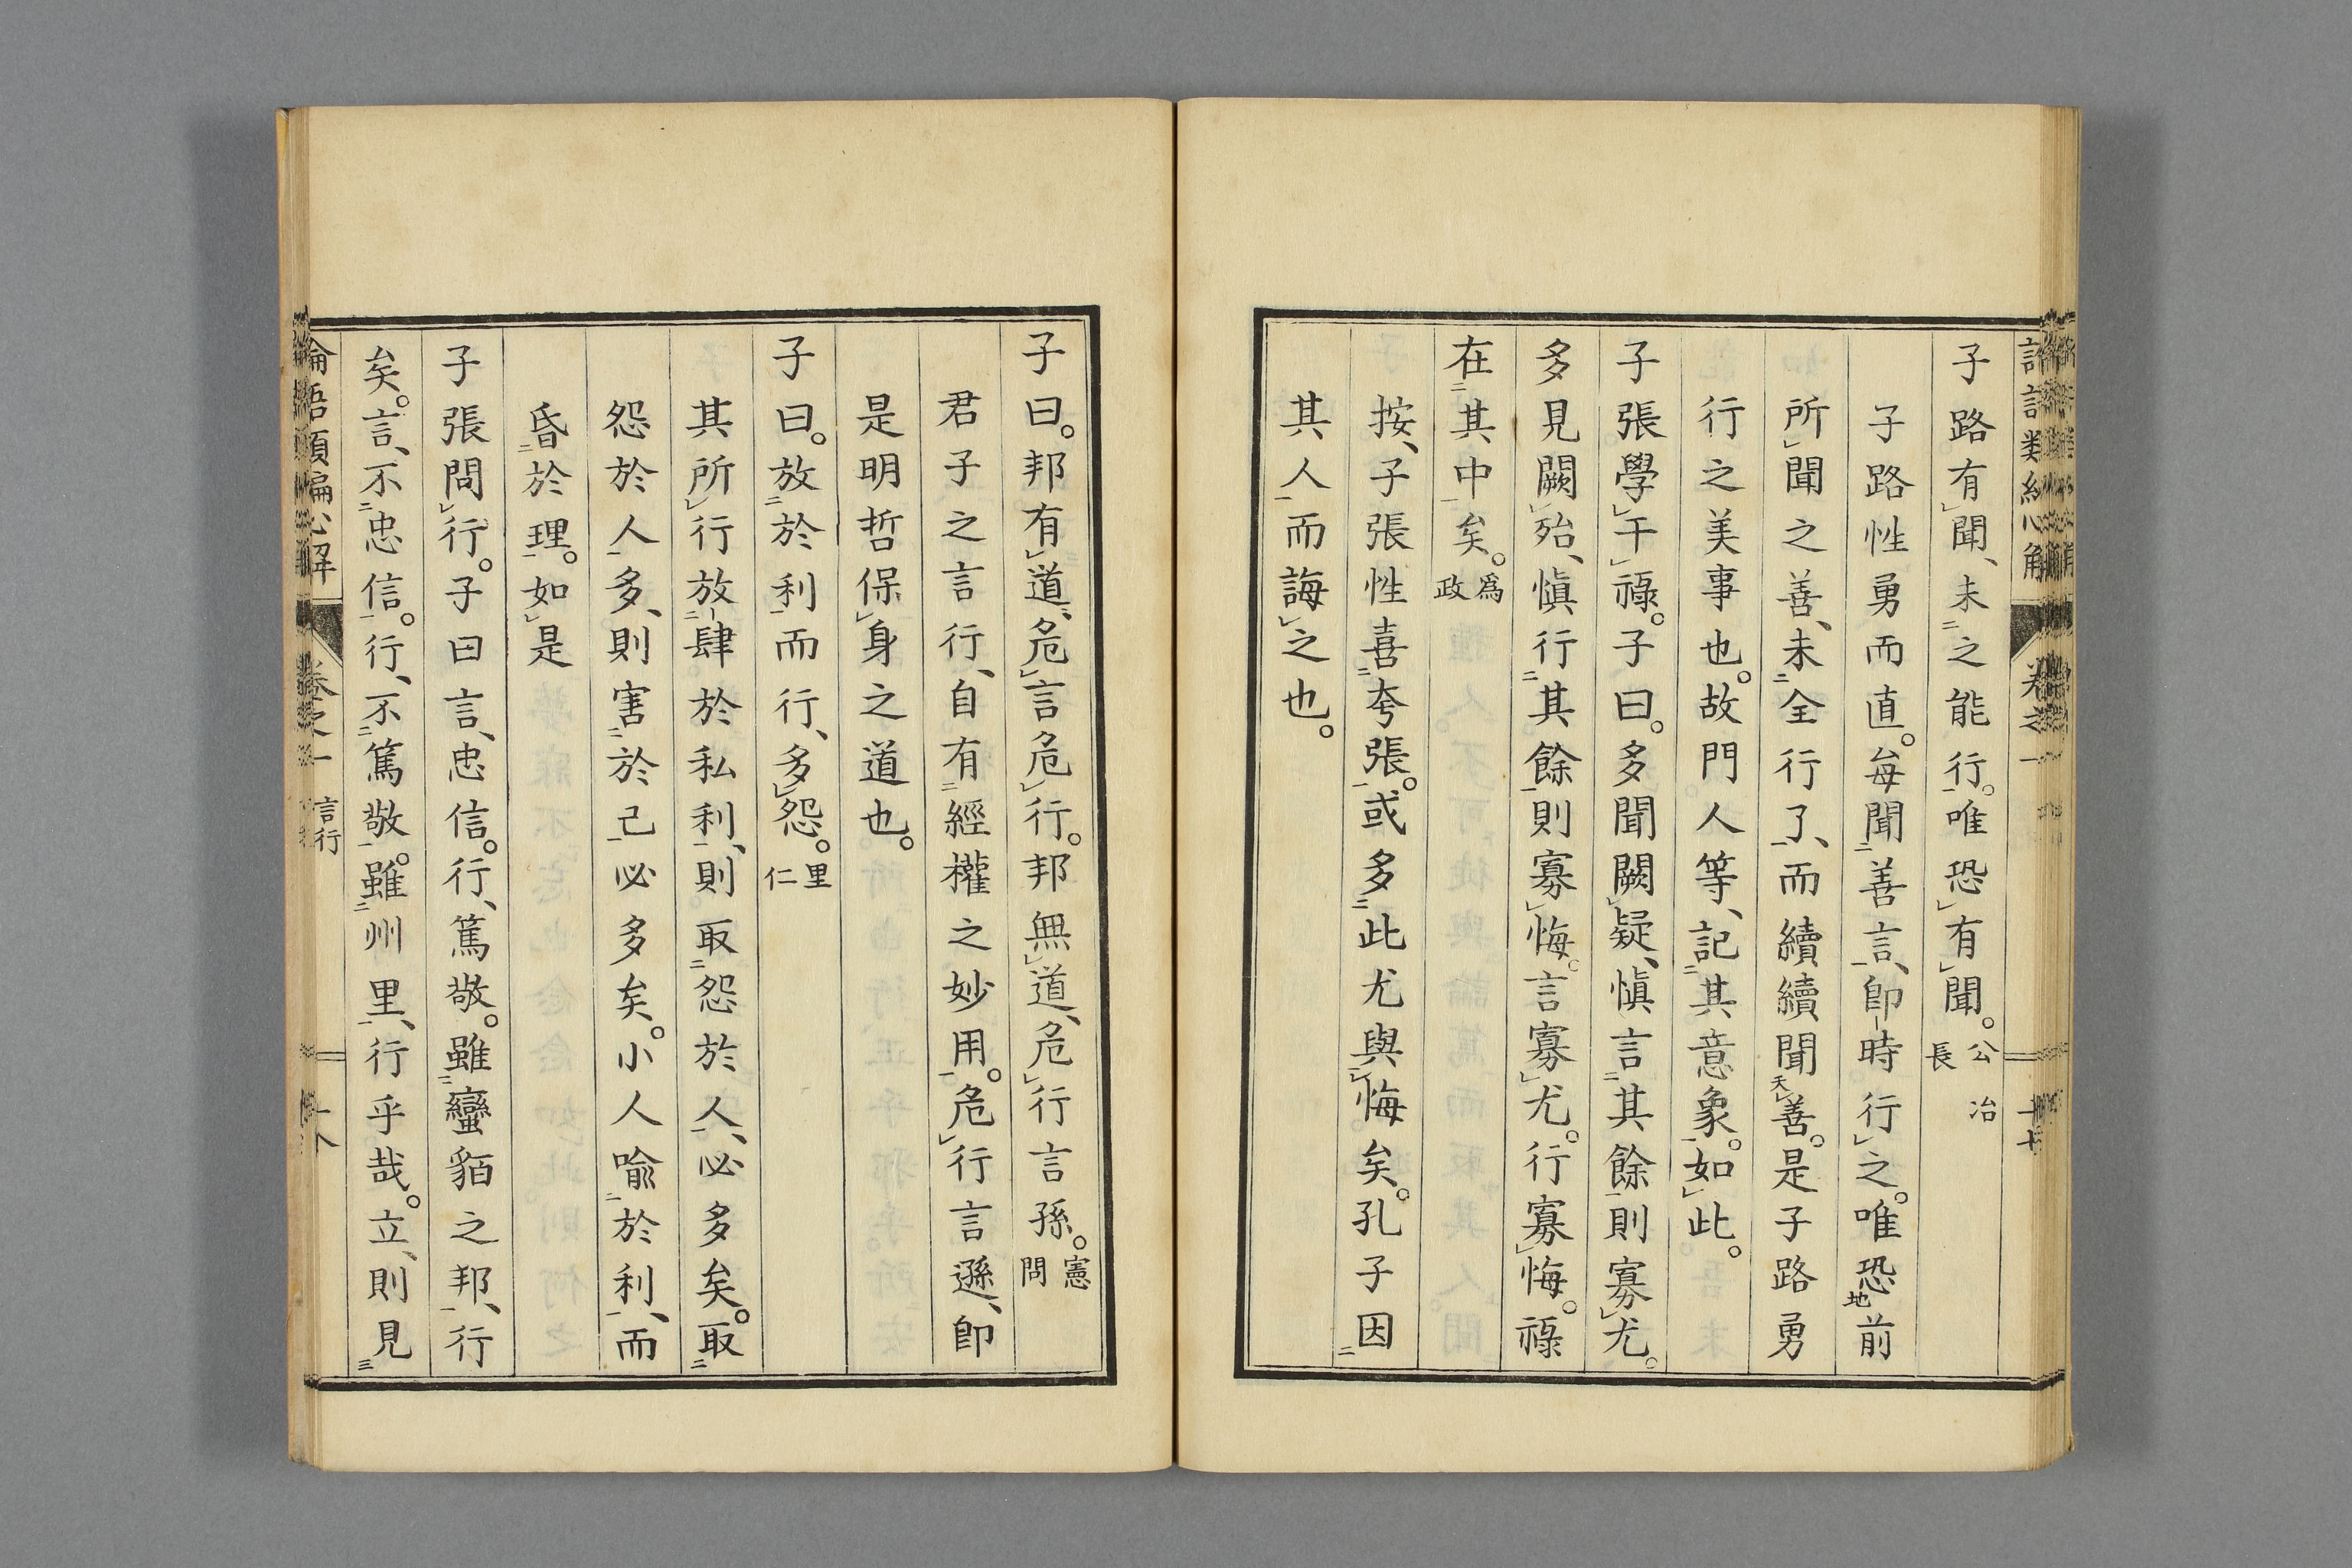 子路有聞、未之能行。唯恐有聞。公冶長
子路性勇而直。每聞善言、卽時行之。唯恐地前
所聞之善、未全行了、而續續聞天善。是子路勇
行之美事也。故門人等、記其意象。如此。
子張學干祿。子曰。多聞闕疑、愼言其餘則寡尤。
多見闕殆、愼行其餘則寡悔。言寡尤。行寡悔。祿
在其中矣。爲政
按、子張性喜夸張。或多此尤與悔矣。孔子因
其人而誨之也。
子曰。邦有道、危言危行。邦無道、危行言孫。憲問
君子之言行、自有經權之妙用。危行言遜、卽
是明哲保身之道也。
子曰。放於利而行、多怨。里仁
其所行放肆於私利、則取怨於人、必多矣。取
怨於人多、則害於己必多矣。小人喩於利、而
昏於理。如是
子張問行。子曰言、忠信。行、篤敬。雖蠻貊之邦、行
矣。言、不忠信。行、不篤敬。雖州里、行乎哉。立、則見
論語類編心解 卷之一 言行 十八